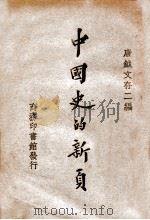 唐鉞文存二編
中國史的新頁
商務印書館發行